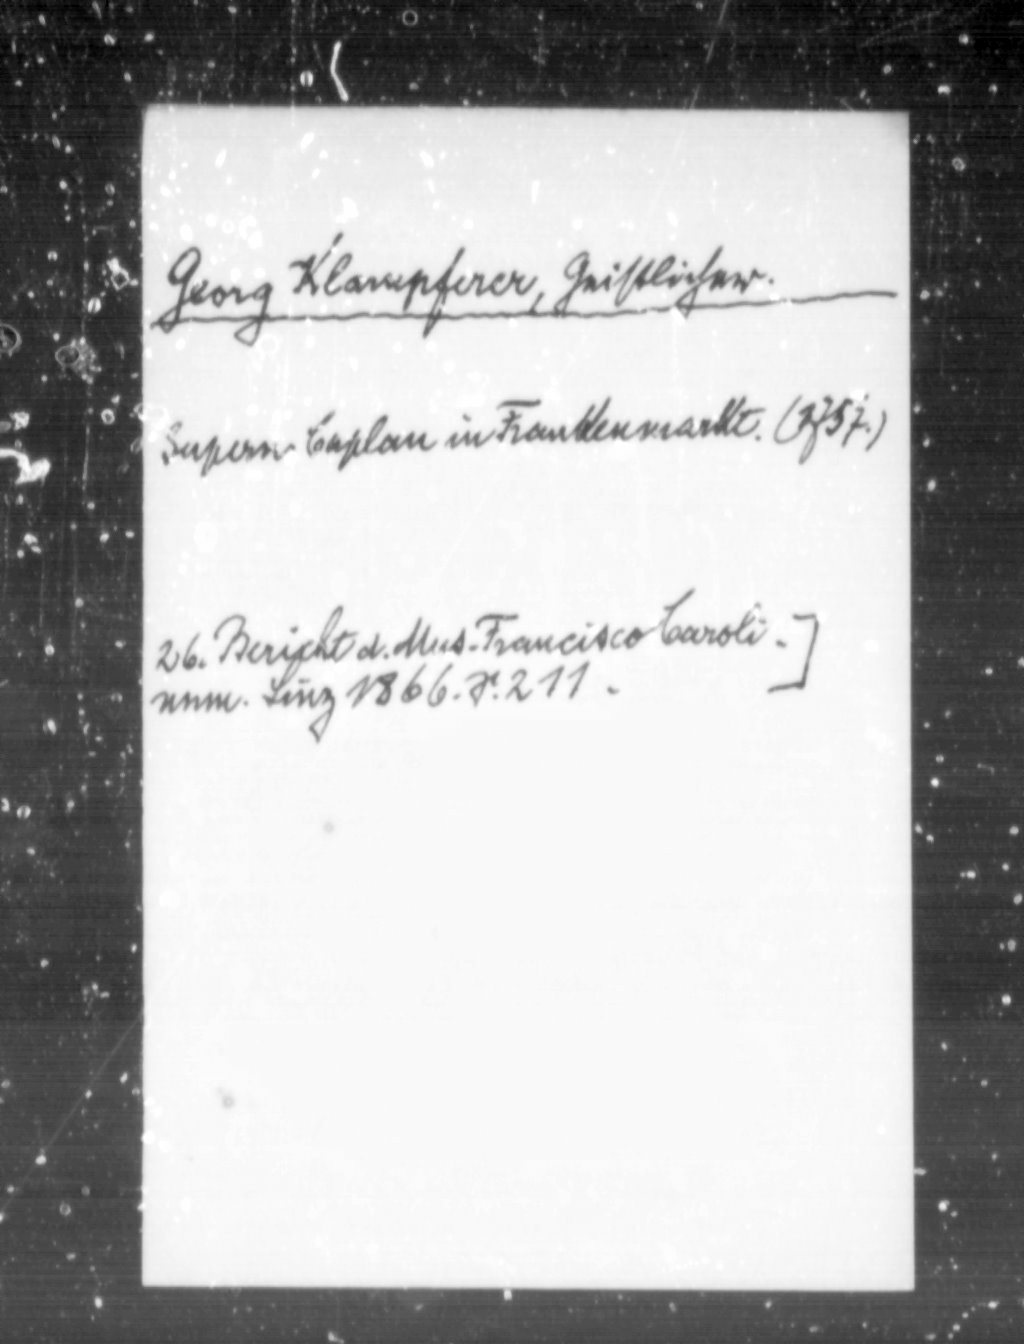 Georg Klampferer, Geistlicher.
Supern. Caplan in Frankenmarkt. (1757.)
26. Bericht d. Mus. Francisco Caroli-]
num. Linz 1866. S. 211.